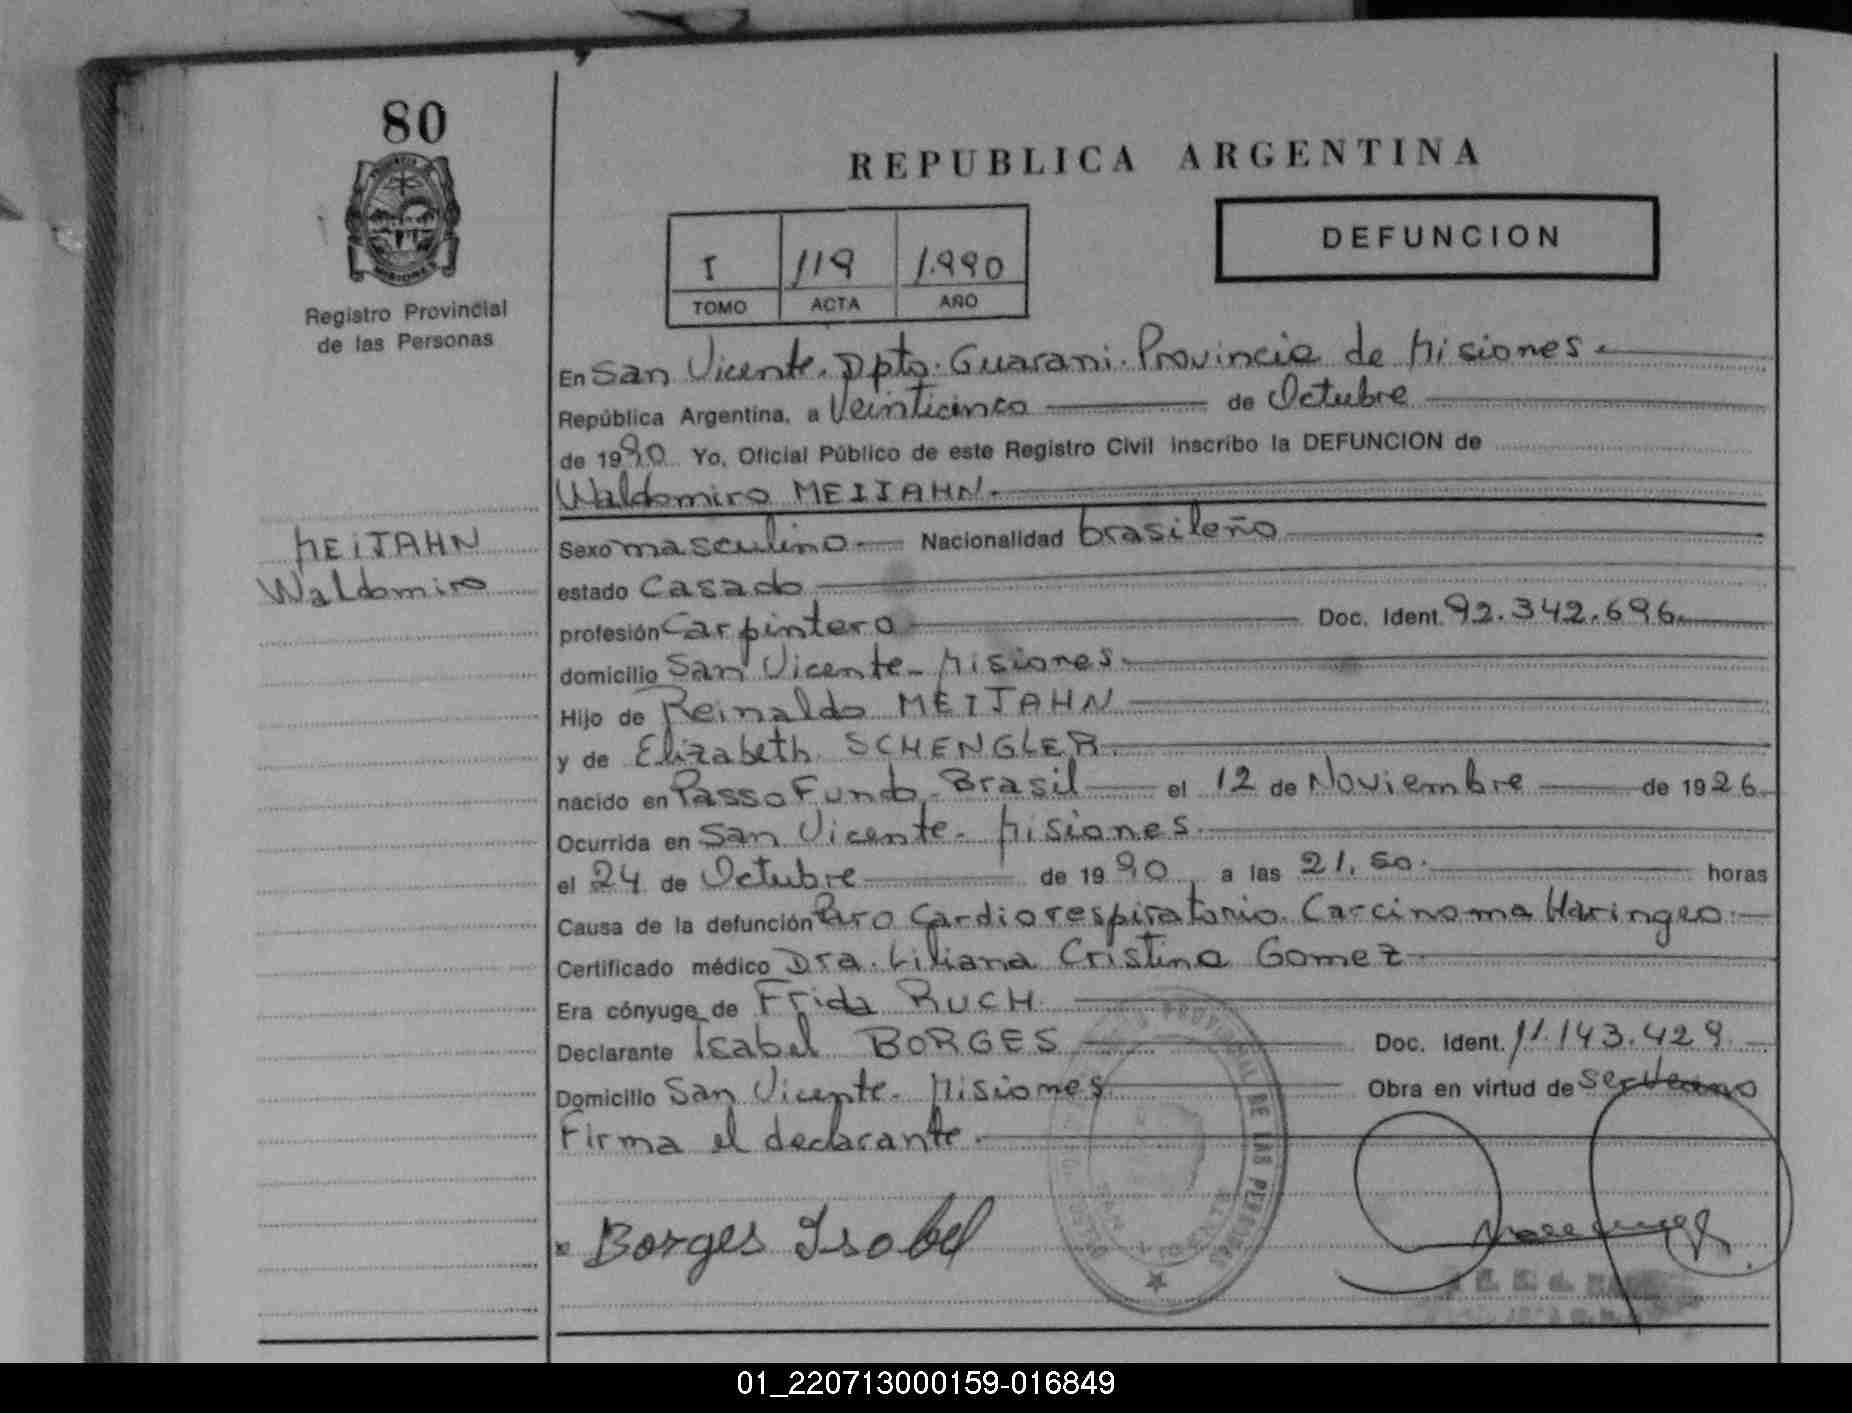 80
REPUBLICA ARGENTINA
DEFUNCION
I 119 1.990
TOMO ACTA AÑO
Registro Provincial
de las Personas
En San Vicente. Dpto. Guarani. Provincia de Misiones.
República Argentina, a Veinticinco de Octubre
de 1990 Yo, Oficial Público de este Registro Civil inscribo la DEFUNCION de
Waldomiro MEIJAHN.
MEIJAHN
Waldomiro
Sexo masculino Nacionalidad brasileño
estado Casado
profesión Carpintero Doc. Ident. 92.342.696.
domicilio San Vicente - Misiones.
Hijo de Reinaldo MEIJAHN
y de Elizabeth SCHENGLER.
nacido en Passo Fundo - Brasil el 12 de Noviembre de 1926
Ocurrida en San Vicente - Misiones.
el 24 de Octubre de 1990 a las 21,50. horas
Causa de la defunción Paro Cardiorespiratorio. Carcinoma
Certificado médico Dra. Liliana Cristina Gomez
Era cónyuge de Frida RUCH.
Declarante Isabel BORGES Doc. Ident. 11.143.429
Domicilio San Vicente - Misiones Obra en virtud de
Firma el declarante.
Borges Isabel
PROVINCIAL DE LAS PERSONAS
SAN VICENTE
01_220713000159-016849